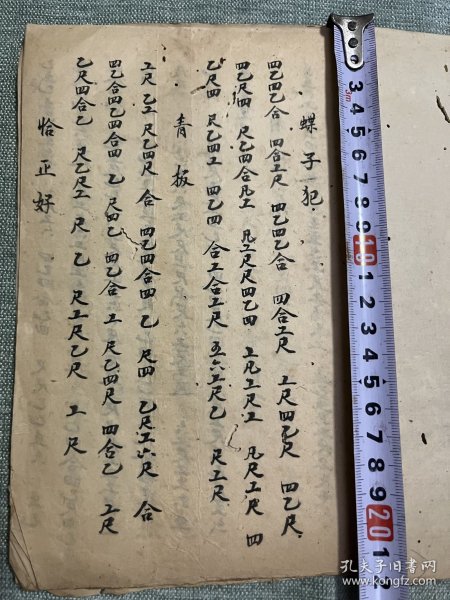 蝶子犯
四乙四乙合 四合工尺 四乙四乙合 四合工尺 工尺四乙尺 四乙尺
四乙尺四 乙尺四合凡工 凡工尺尺四乙四 工凡工尺工 凡尺工尺 四
乙尺四 尺乙四工 四乙四 合工合工尺 五六工尺乙 尺工尺
青板
工尺 乙工 尺乙四尺 合 四乙四合四 乙 尺四 乙尺工六尺 合
四乙合四乙四合四 乙 尺四乙 四乙合 工 尺乙四尺 四合乙 工尺
乙尺四合乙 尺乙尺工 尺 乙 尺工尺乙尺 工 尺
恰正好
3m
3 4 5 6 7 8 9 10 1 2 3 4 5 6 7 8 9 20 1
孔夫子旧书网
www.kongfz.com